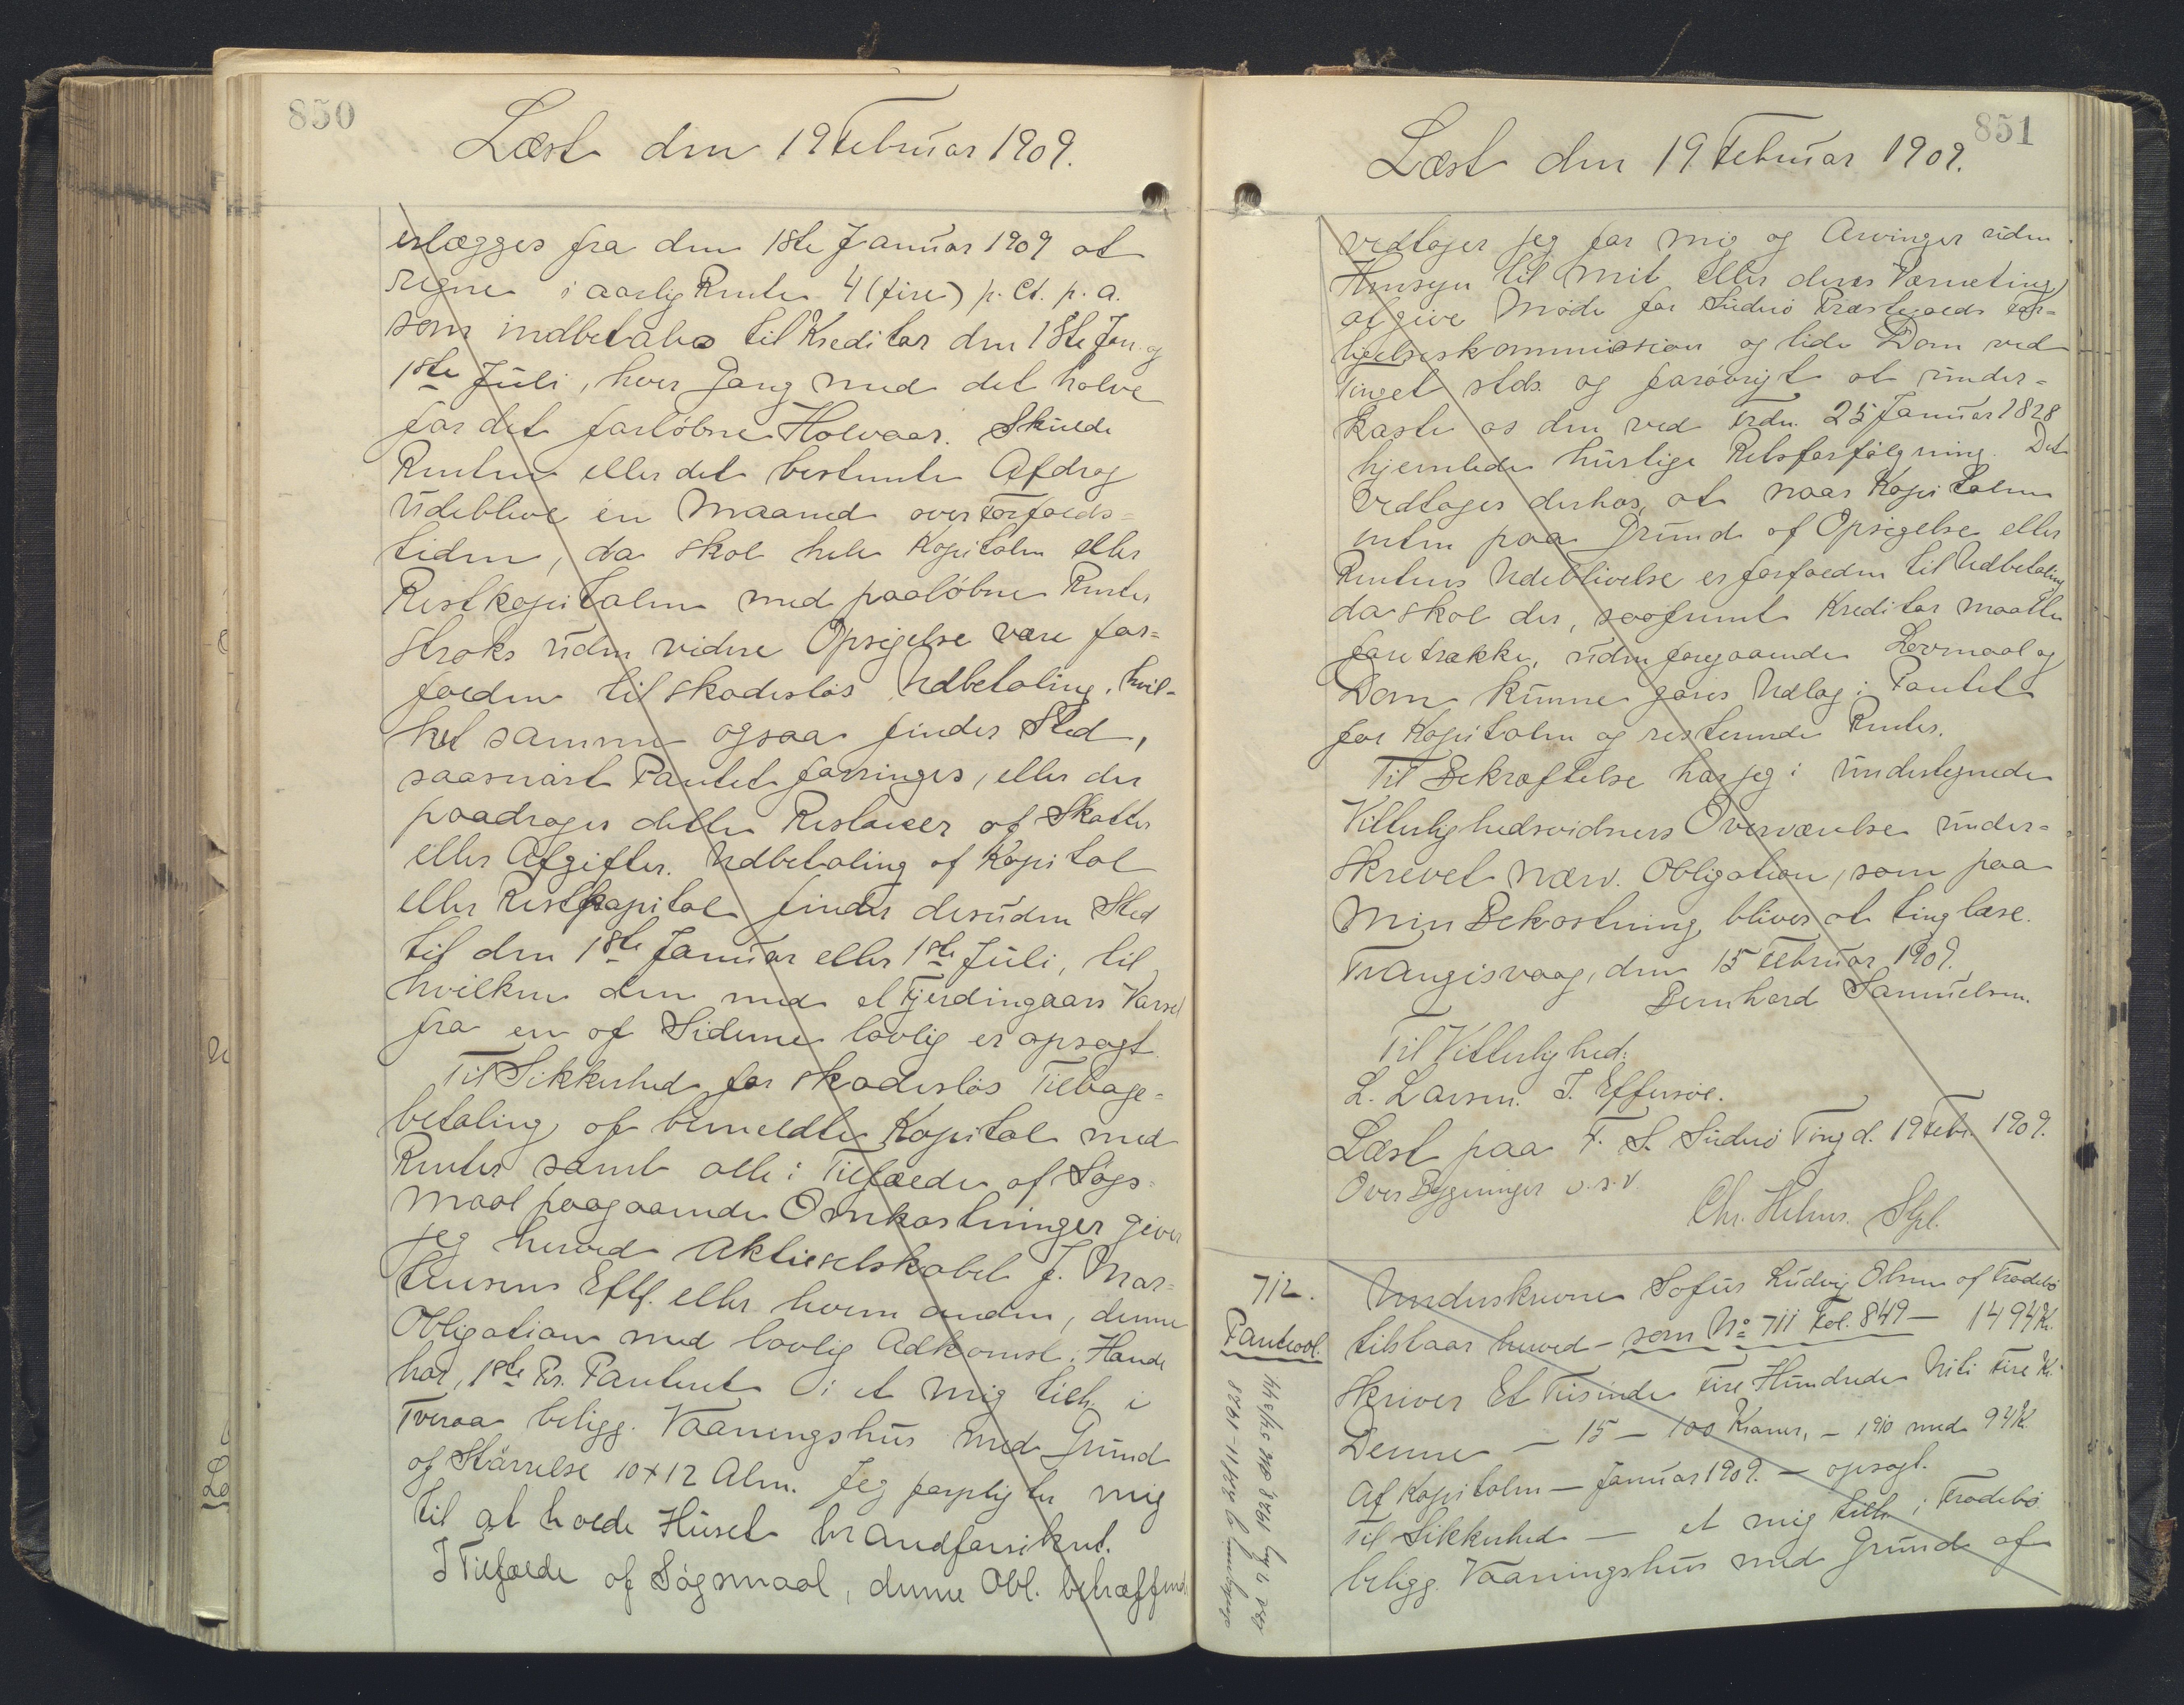 850
Læst den 19 Februar 1909.
erlægges fra den 1ste Januar 1909 at
regne i aarlig Rente 4 (fire) p. Ct. p. a.
som indbetales til Kreditor den 1ste Jan. og
1ste Juli, hver Gang med det halve
for det forløbne Halvaar. Skulde
Renten eller det bestemte Afdrag
udeblive én Maaned over Forfalds-
tiden, da skal hele Kapitalen eller
Restkapitalen med paaløbne Renter
straks uden videre Opsigelse være for-
falden til skadesløs Udbetaling, hvil-
ket samme ogsaa finder Sted,
saasnart Pantet forringes, eller der
paadrages dette Restancer af Skatter
eller Afgifter. Udbetaling af Kapital
eller Restkapital finder desuden Sted
til den 1ste Januar eller 1ste Juli, til
hvilken den med et Fjerdingaars Varsel
fra en af Siderne lovlig er opsagt.
Til Sikkerhed for skadesløs Tilbage-
betaling af bemeldte Kapital med
Renter samt alle i Tilfælde af Søgs-
maal paagaaende Omkostninger giver
jeg herved Aktieselskabet J. Mor-
tensens Eftf. eller hvem anden, denne
Obligation med lovlig Adkomst i Hænde
har, 1ste Pr. Panteret i et mig tilh. i
Tveraa beligg. Vaaningshus med Grund
af Størrelse 10 x 12 Alen. Jeg forpligter mig
til at holde Huset brandforsikret.
I Tilfælde af Søgsmaal, denne Obl. betræffende
851
Læst den 19. Februar 1909.
vedtager jeg for mig og Arvinger uden
Hensyn til mit eller deres Værneting
at give Møde for Suderø Præstegjælds For-
ligelseskommission og lide Dom ved
Tinget stds. og forøvrigt at under-
kaste os den ved Frdn. 25 Januar 1828
hjemlede hurtige Retsforfølgning. Det
vedtages derhos, at naar Kapitalen
enten paa Grund af Opsigelse eller
Rentens Udeblivelse er forfalden til Udbetaling
da skal der, saafremt Kreditor maatte
foretrække, uden foregaaende Lovmaal og
Dom kunne gøres Udlæg i Pantet
for Kapitalen og resterende Renter.
Til Bekræftelse har jeg i undertegnede
Vitterlighedsvidners Overværelse under-
skrevet nærv. Obligation, som paa
min Bekostning bliver at tinglæse.
Trangisvaag, den 15 Februar 1909.
Bernhard Samuelsen.
Til Vitterlighed:
L. Larsen. J. Effersøe.
Læst paa F. S. Suderø Ting d. 19 Febr. 1909.
Over Bygninger o. s. v.
Chr. Helms. Spl.
712.
Panteobl.
Underskrevne Sofus Ludvig Olsen af Frodebø
tilstaar herved - som No 711 Fol. 849 - 1494 Kr.
skriver Et Tusinde Fire Hundrede Niti Fire Kr.
Denne - 15 - 100 Kroner, - 1910 med 94 Kr.
Af Kapitalen - Januar 1909. - opsagt.
Til Sikkerhed - et mig tilh. i Frodebø
beligg. Vaaningshus med Grund af